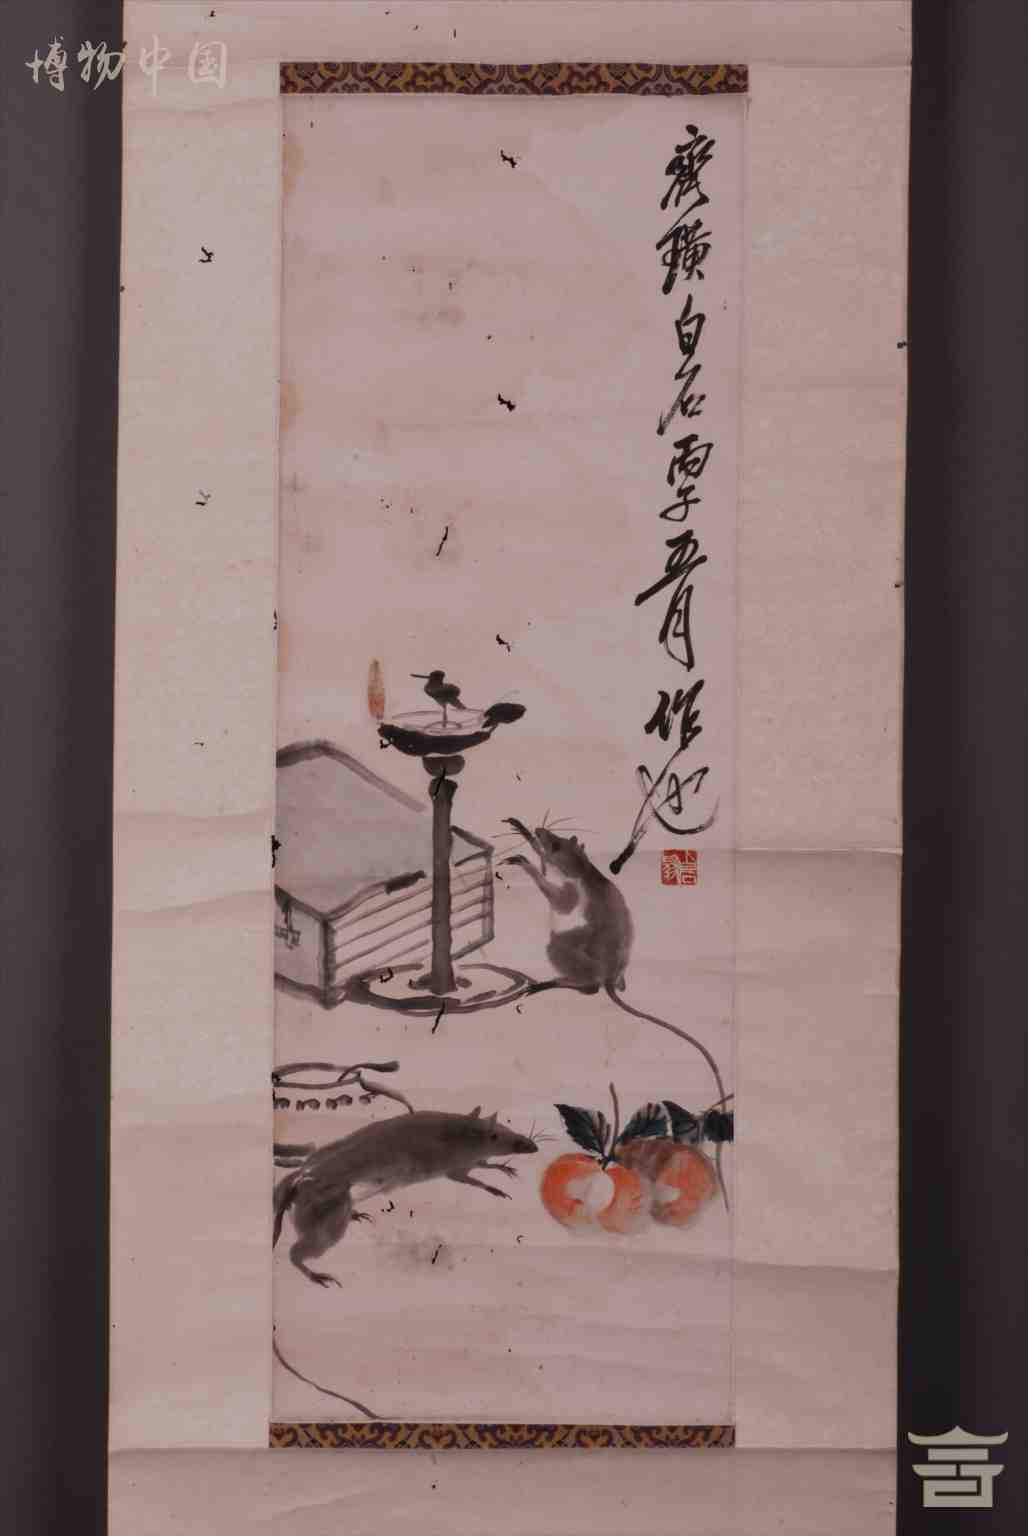 博物中国
齊璜白石丙子五月作也